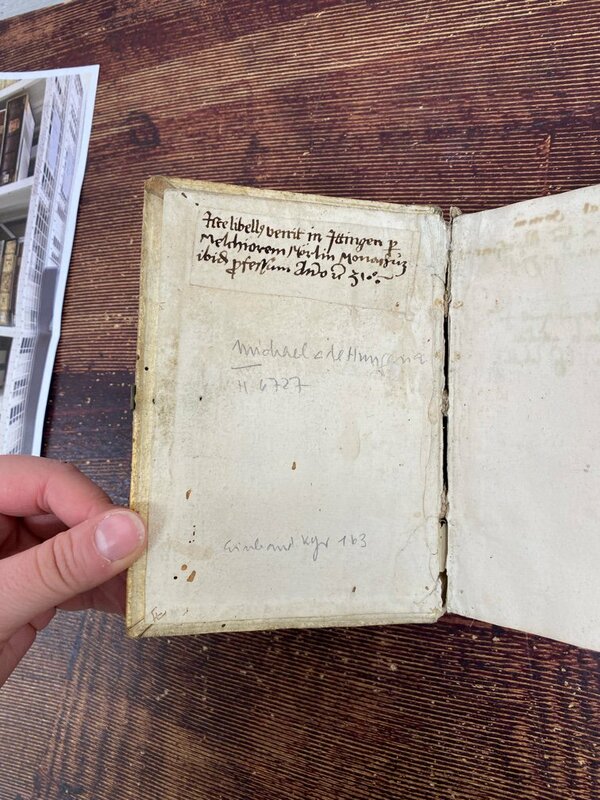 Iste libellꝰ venit in Ittingen ꝑ
Melchiorem Mörlin Monachūz
ibid ꝓfessum Año
Michael de Hungaria
H. 6727
Einband Kyr 163